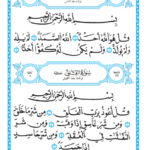 بِسْمِ اللَّهِ الرَّحْمَٰنِ الرَّحِيمِ
قُلْ هُوَ اللَّهُ أَحَدٌ اللَّهُ الصَّمَدُ لَمْ يَلِدْ
وَلَمْ يُولَدْ وَلَمْ يَكُن لَّهُ كُفُوًا أَحَدٌ
سُورَةُ الفَلَقِ
بِسْمِ اللَّهِ الرَّحْمَٰنِ الرَّحِيمِ
قُلْ أَعُوذُ بِرَبِّ الْفَلَقِ مِن شَرِّ مَا خَلَقَ
وَمِن شَرِّ غَاسِقٍ إِذَا وَقَبَ وَمِن شَرِّ
النَّفَّاثَاتِ فِي الْعُقَدِ وَمِن شَرِّ حَاسِدٍ
إِذَا حَسَدَ